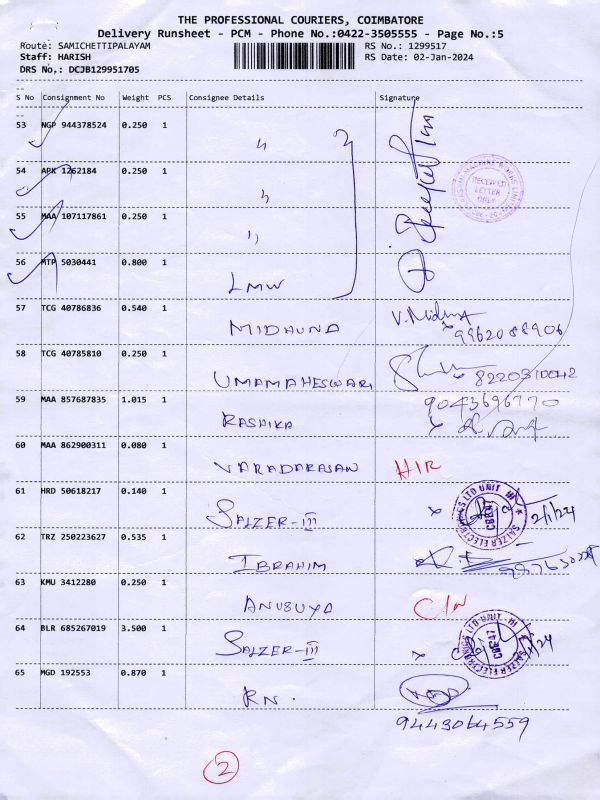 THE PROFESSIONAL COURIERS, COIMBATORE
Delivery Runsheet - PCM - Phone No.:0422-3505555 - Page No.:5
Route: SAMICHETTIPALAYAM RS No.: 1299517
Staff: HARISH RS Date: 02-Jan-2024
DRS No,: DCJB129951705
S No Consignment No Weight PCS Consignee Details Signature
53 NGP 944378524 0.250 1 "
54 APK 1262184 0.250 1 "
RECEIVED
LETTER
ONLY
55 MAA 107117861 0.250 1 "
56 MTP 5030441 0.800 1 LMW
57 TCG 40786836 0.540 1 MIDHUNA V. Midhuna
9962088906
58 TCG 40785810 0.250 1 UMAMAHESWARI 8220310042
59 MAA 857687835 1.015 1 RASHIKA 9043696770
60 MAA 862900311 0.080 1 VARADARAJAN HIR
61 HRD 50618217 0.140 1 SALZER-III 2/1/24
SALZER ELECTRONICS LTD UNIT III
CBE-47
62 TRZ 250223627 0.535 1 IBRAHIM
63 KMU 3412280 0.250 1 ANUSUYA C/N
64 BLR 685267019 3.500 1 SALZER-III
SALZER ELECTRONICS LTD UNIT III
CBE-47
65 MGD 192553 0.870 1 RN.
9443064559
2